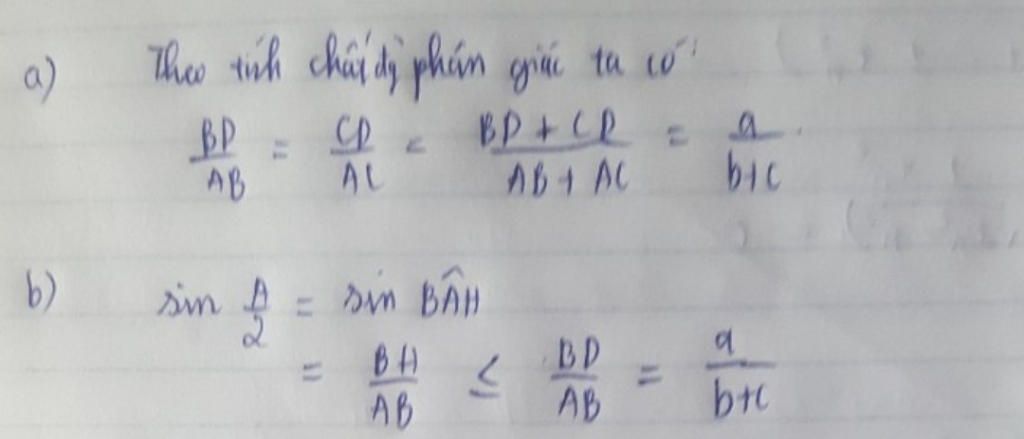 a) Theo tính chất đg phân giác ta có:
BD/AB = CD/AC = BD + CD/AB + AC = a/b+c
b) sin A/2 = sin BÂH
= BH/AB ≤ BD/AB = a/b+c